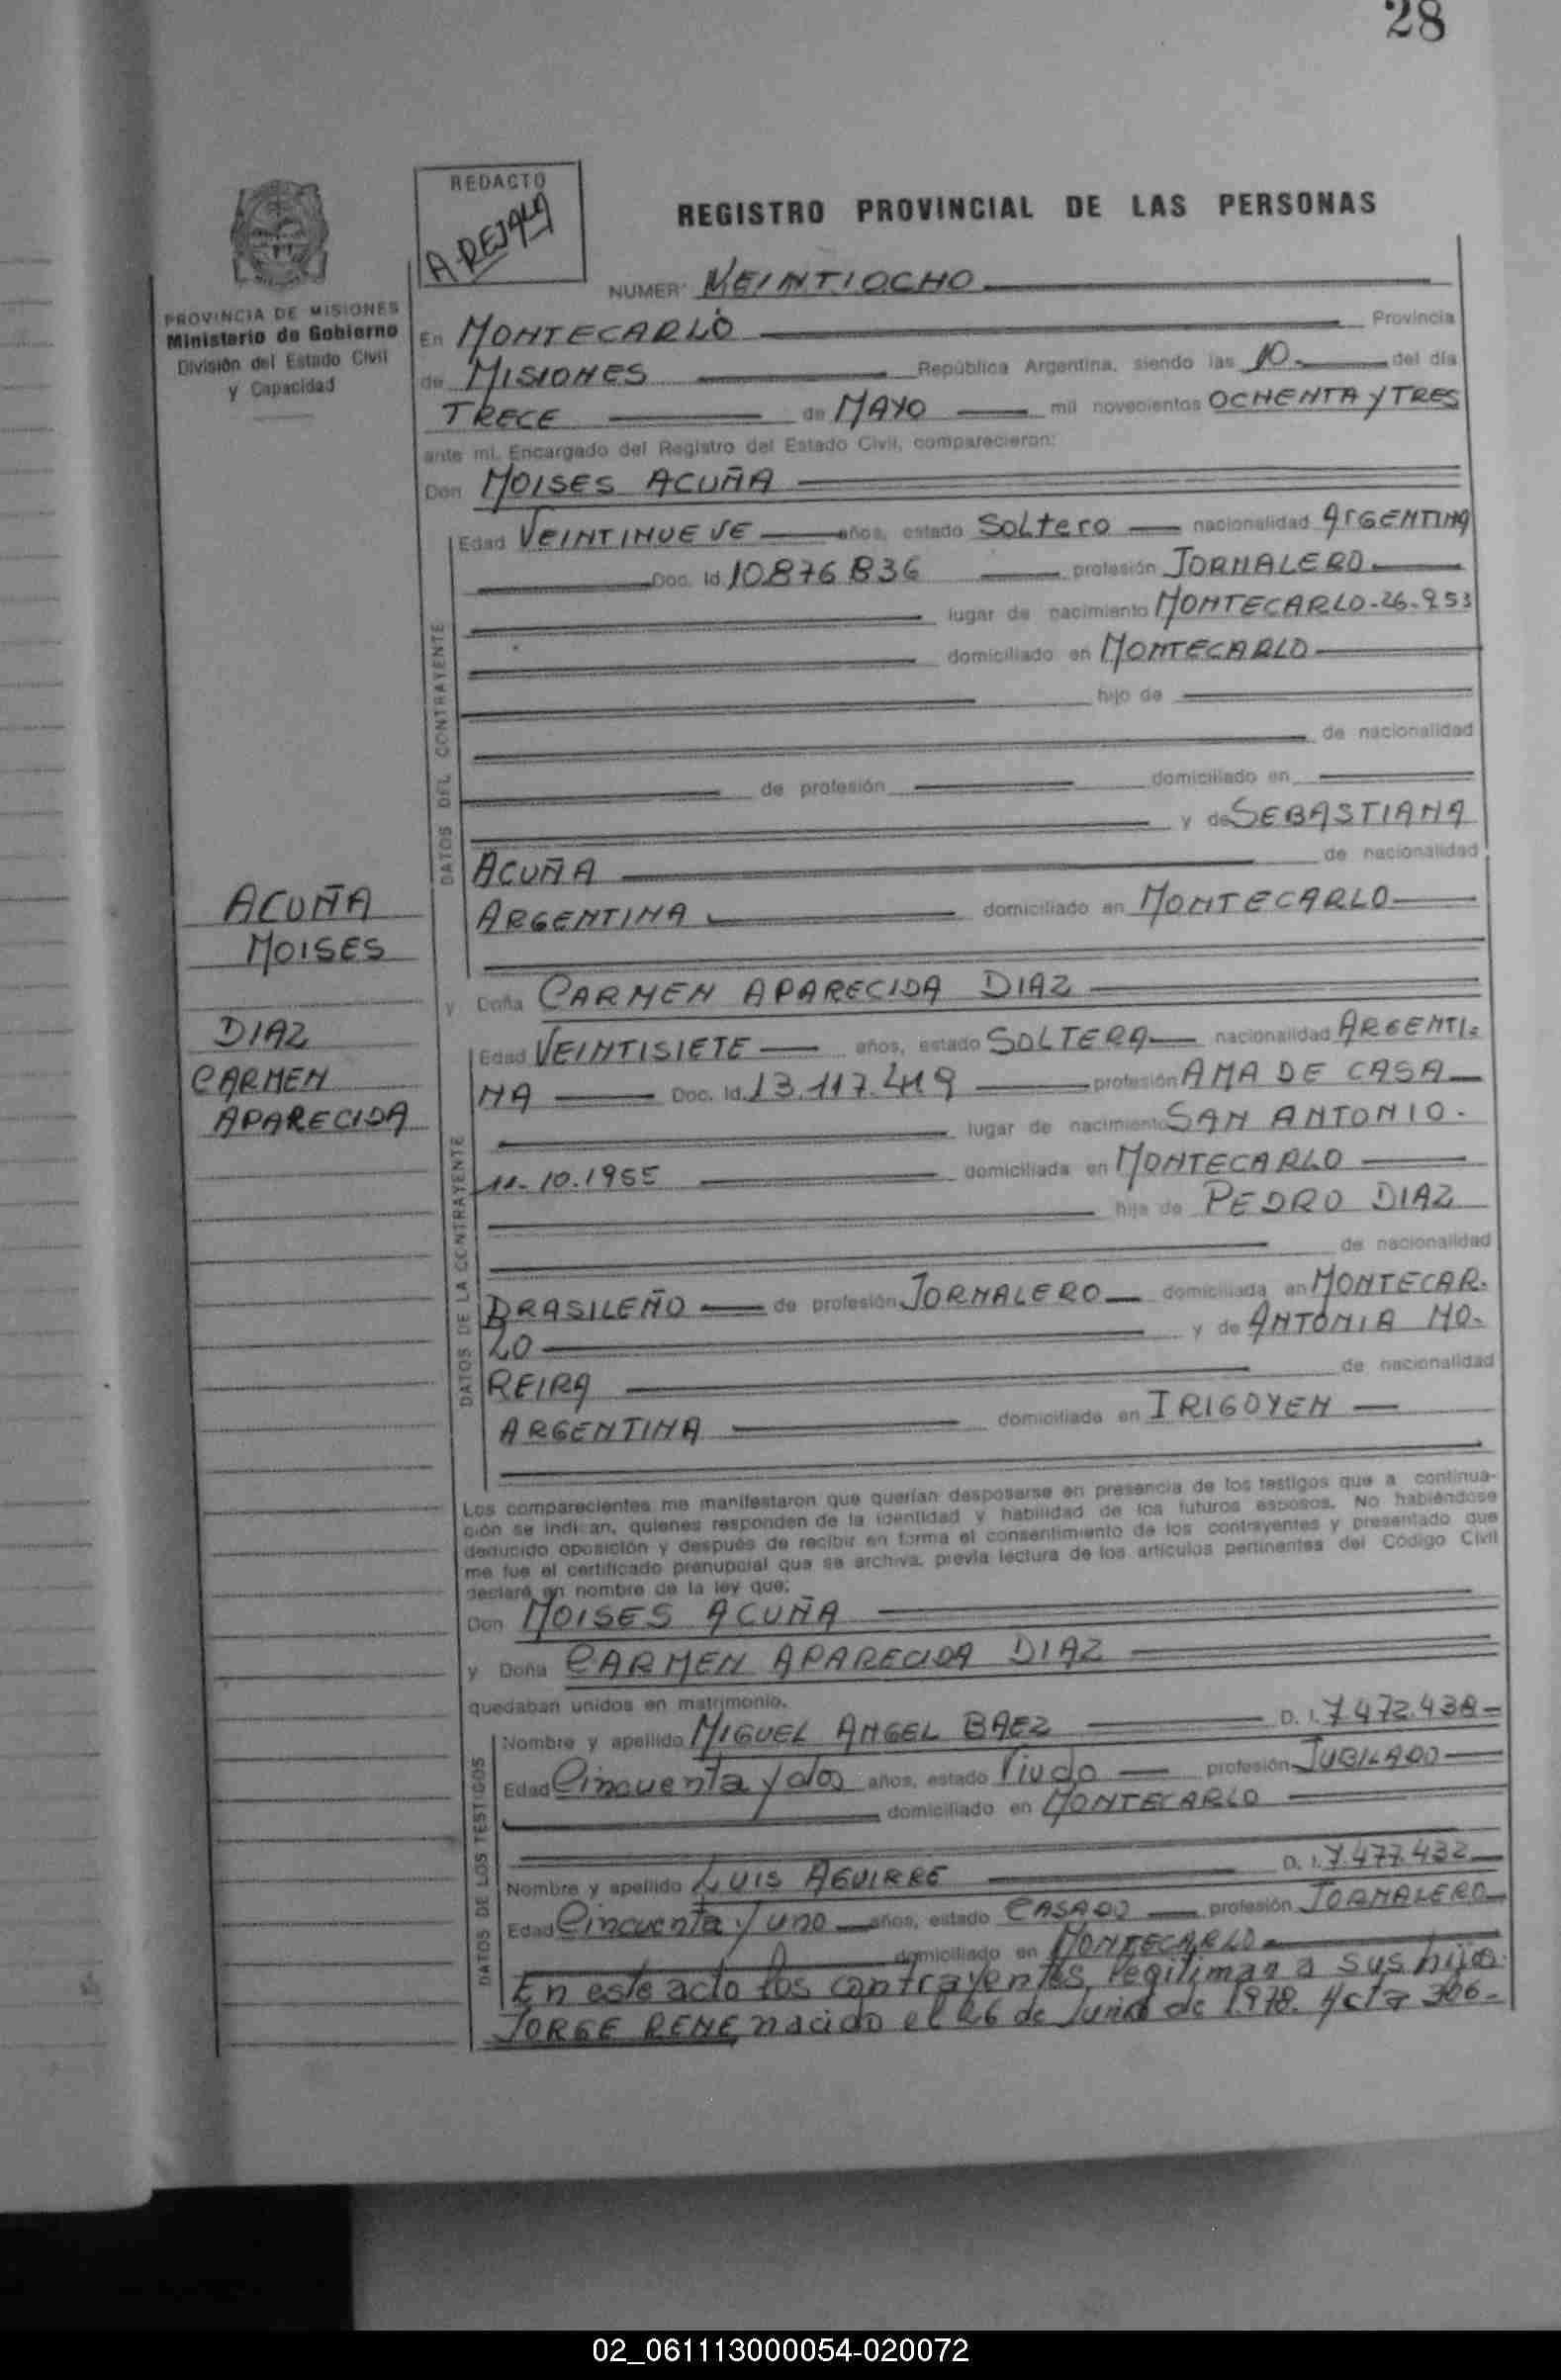 28
REDACTO
A. REJALA
REGISTRO PROVINCIAL DE LAS PERSONAS
PROVINCIA DE MISIONES
Ministerio de Gobierno
División del Estado Civil
y Capacidad
NUMER° VEINTIOCHO
En MONTECARLO Provincia
de MISIONES República Argentina, siendo las 10.- del día
TRECE de MAYO mil novecientos OCHENTA Y TRES
ante mi, Encargado del Registro del Estado Civil, comparecieron:
Don MOISES ACUÑA
DATOS DEL CONTRAYENTE
Edad VEINTINUEVE años, estado SOLTERO nacionalidad ARGENTINA
Doc. Id. 10.876.836 profesión JORNALERO
lugar de nacimiento MONTECARLO-26-953
domiciliado en MONTECARLO
hijo de
de nacionalidad
de profesión domiciliado en
y de SEBASTIANA
ACUÑA de nacionalidad
ARGENTINA domiciliado en MONTECARLO
ACUÑA
MOISES
DIAZ
CARMEN
APARECIDA
y Doña CARMEN APARECIDA DIAZ
DATOS DE LA CONTRAYENTE
Edad VEINTISIETE años, estado SOLTERA nacionalidad ARGENTI-
NA Doc. Id. 13.117.419 profesión AMA DE CASA
lugar de nacimiento SAN ANTONIO.
11-10.1955 domiciliada en MONTECARLO
hija de PEDRO DIAZ
de nacionalidad
BRASILEÑO de profesión JORNALERO domiciliada en MONTECAR-
LO y de ANTONIA MO-
REIRA de nacionalidad
ARGENTINA domiciliada en IRIGOYEN
Los comparecientes me manifestaron que querían desposarse en presencia de los testigos que a continua-
ción se indican, quienes responden de la identidad y habilidad de los futuros esposos. No habiéndose
deducido oposición y después de recibir en forma el consentimiento de los contrayentes y presentado que
me fue el certificado prenupcial que se archiva, previa lectura de los artículos pertinentes del Código Civil
declaré en nombre de la ley que:
Don MOISES ACUÑA
y Doña CARMEN APARECIDA DIAZ
quedaban unidos en matrimonio.
DATOS DE LOS TESTIGOS
Nombre y apellido MIGUEL ANGEL BAEZ D. I. 7.472.438-
Edad Cincuenta y dos años, estado Viudo profesión JUBILADO
domiciliado en MONTECARLO
Nombre y apellido LUIS AGUIRRE D. I. 7.477.432
Edad Cincuenta y uno años, estado CASADO profesión JORNALERO
domiciliado en MONTECARLO
En este acto los contrayentes legitiman a sus hijos
JORGE RENE nacido el 26 de Junio de 1.978. Acta 306-
02_061113000054-020072